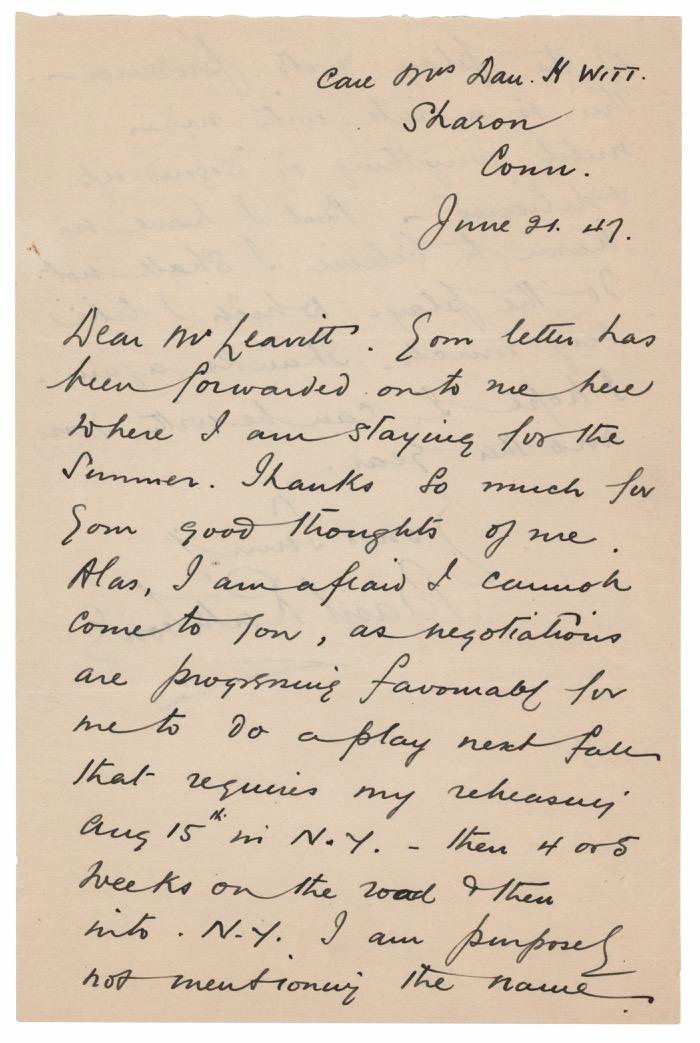 Care Mrs Dan. H Witt.
Sharon
Conn.
June 21. 47.
Dear Mr Leavitt. Your letter has
been forwarded on to me here
where I am staying for the
Summer. Thanks so much for
your good thoughts of me.
Alas, I am afraid I cannot
come to you, as negotiations
are progressing favourably for
me to do a play next fall
that requires my rehearsing
Aug 15th in N.Y. - then 4 or 5
weeks on the road & then
into. N.Y. I am purposely
not mentioning the name.